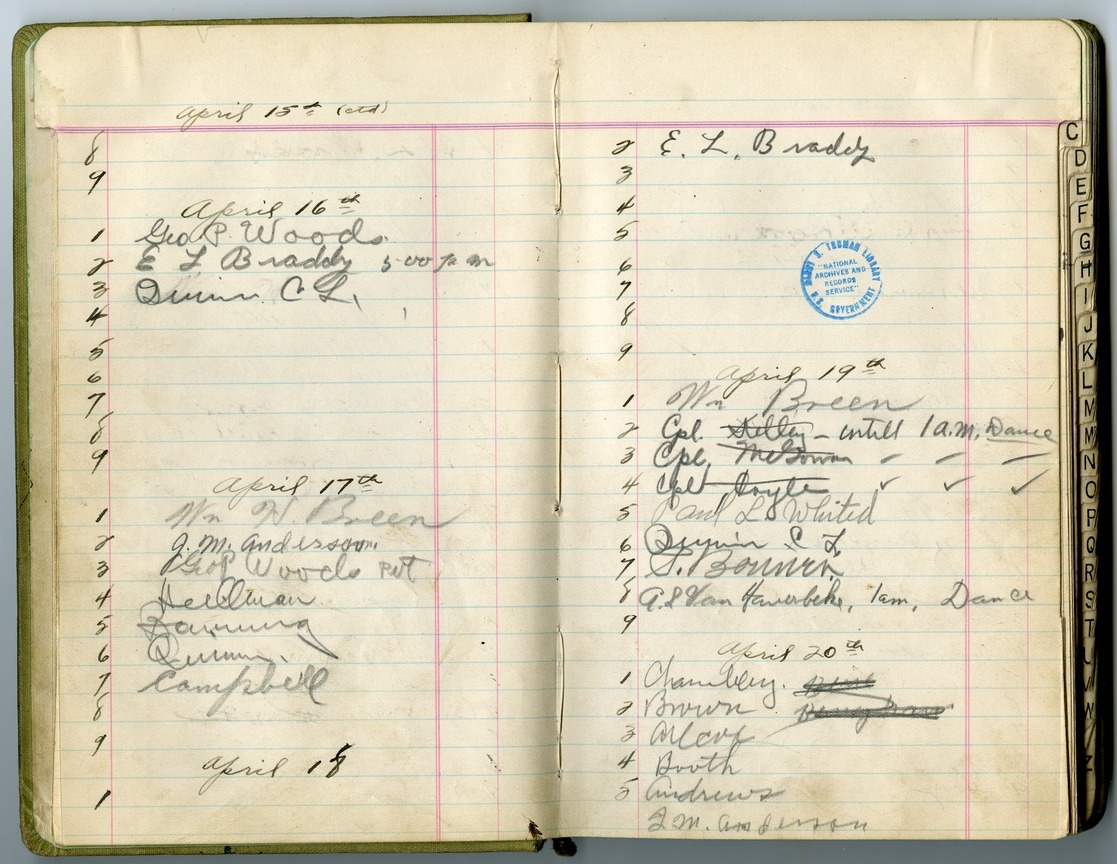 April 15th (ctd)
8
9
April 16th
1 Geo P. Woods.
2 E L Braddy 5-00 p m
3 Quinn C L.
4
5
6
7
8
9
April 17th
1 Wm H. Breen
2 J. M. Anderson.
3 Geo P Woods Pvt
4 Heellman
5
6 Quinn.
7 Campbell
8
9
April 18
1
2 E. L. Braddy
3
4
5
6
7
8
9
HARRY S. TRUMAN LIBRARY
"NATIONAL
ARCHIVES AND
RECORDS
SERVICE"
U.S. GOVERNMENT
April 19th
1 Wm Breen
2 Cpl. Kelley - intill 1 a.m. Dance
3 Cpl. McGowan " " "
4 Cpl Coyle ✓ ✓ ✓
5 Paul L. Whited
6 Quinn C L
7 S. Bonner
8 A. L Van Haverbeke, 1am, Dance
9
April 20th
1 Chambley.
2 Brown
3
4 Booth
5 Andrews
J. M. Anderson
C
D
E
F
G
H
I
J
K
L
M
N
O
P
Q
R
S
T
U
W
Z